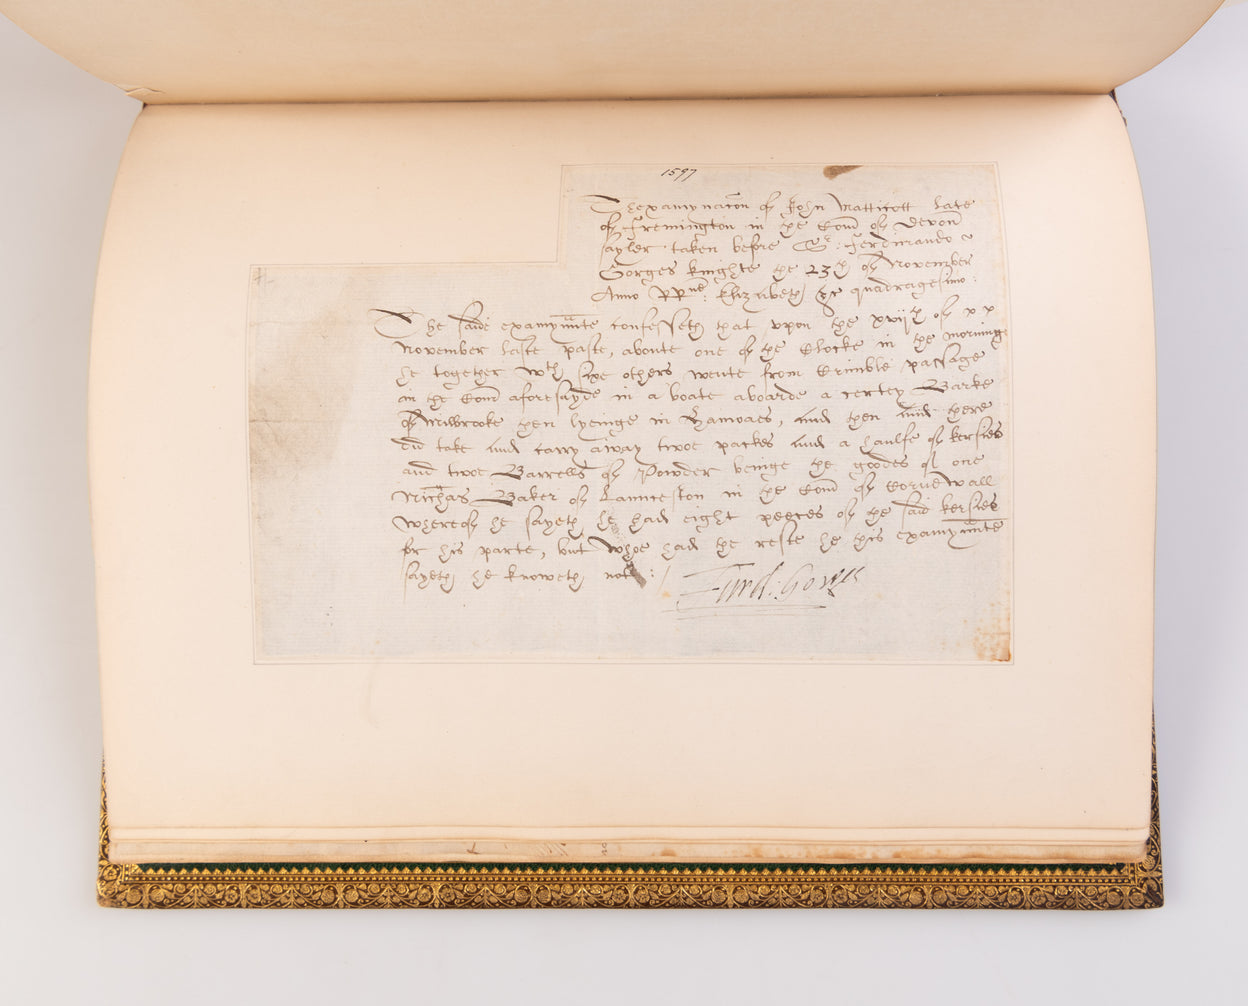 1597
Thexamynacon of John Matticott late
of Fremington in the Com̄ of Devon
sayler taken before Sr: Ferdinando
Gorges knighte the 23th of November
Anno RRne: Elizabeth &c quadragesimo:
The said examynnte confesseth that vpon the xvijth of
November laste paste, aboute one of the Clocke in the morninge
he together wth sixe others wente from Crimble passage
in the Com̄ aforesayde in a boate aboarde a certey Barke
of Milbrooke then lyeinge in Hamoaes, and then and there
did take and carry away twoe packes and a haulfe of kersies
and twoe Barrells of Powder beinge the goodes of one
Nichas Baker of Launceston in the Com̄ of Cornewall
whereof he sayeth he had eight peeces of the said kersies
for his parte, but whoe had the reste he this examynnte
sayeth he knoweth not:/
Ferd: Gorges